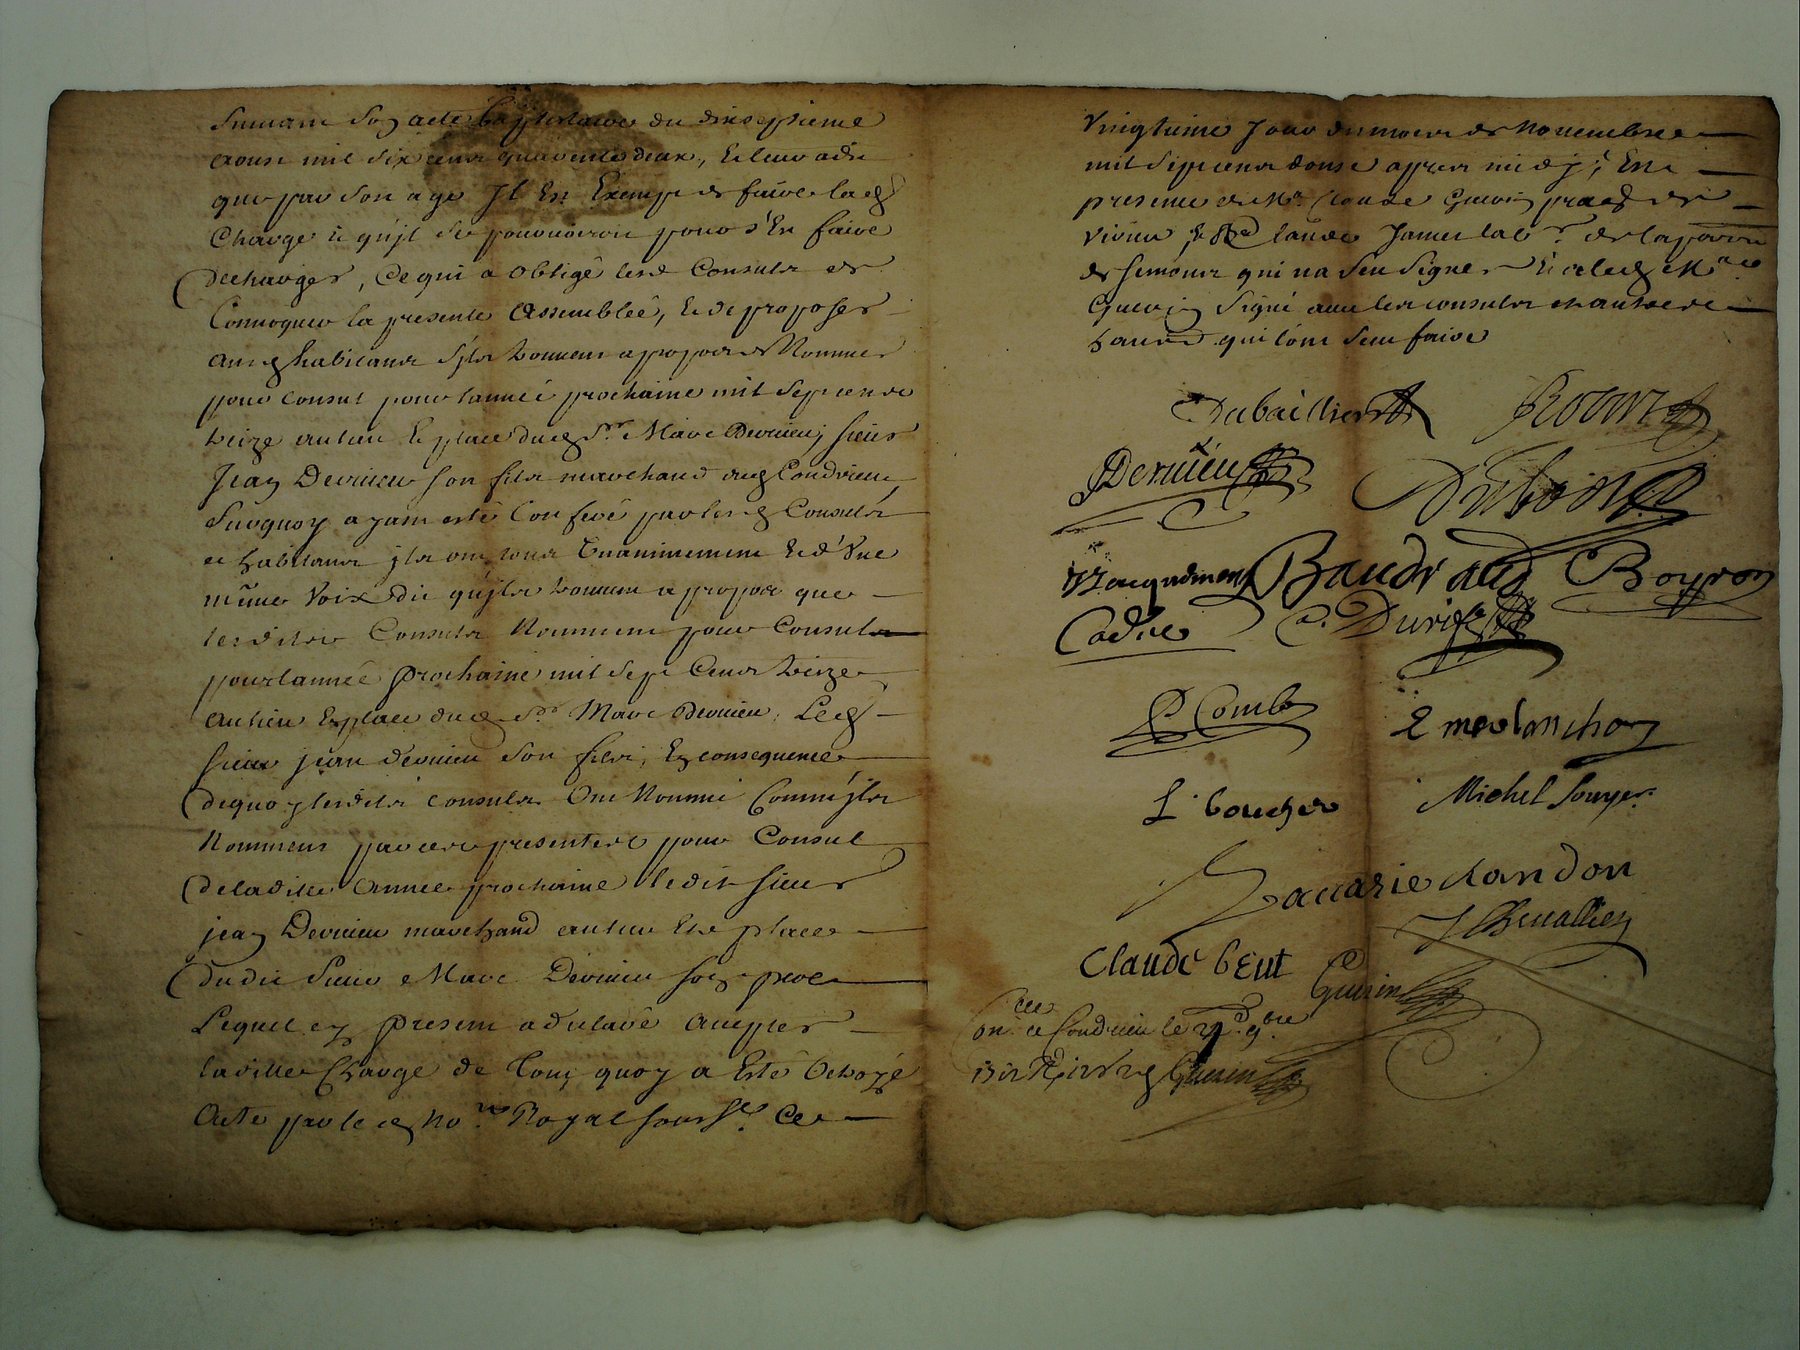 suivant son acte baptistaire du dixseptieme
aoust mil six cens quarente deux, & leur a dit
que par son age Jl Est Exempt de faire lad
Charge & qu'jl se pourvoiroit pour s'En faire
decharger, Ce qui a obligé lesd Consuls de
Convoquer la presente assemblée, & de proposer
aux habitants s'jls trouvent a propos de Nommer
pour Consul pour l'année prochaine mil sept cens
treize au lieu & place dud Sr Marc Dervieu, sieur
Jean Dervieu son fils marchand aud Condrieu
Surquoy ayant esté Conferé par lesd Consuls
et habitants jls ont tous Unanimement & d'Une
même Voix dit qu'jls trouvent a propos que
lesdits Consuls Nomment pour Consul
pour l'année prochaine mil sept Cens treize
au lieu & place dud Sr Marc Dervieu, Led
sieur jean dervieu son fils, En consequence
dequoy lesdits consuls Ont Nommé Comme jls
Nomment par ces presentes pour Consul
de ladite Année prochaine ledit sieur
jean Dervieu marchand au lieu & place
dudit Sieur Marc Dervieu son pere
Lequel cy present a declaré accepter
ladite Charge de tout quoy a Esté Octroyé
Acte par le d No.re Royal soussé. Ce
Vingtieme Jour du mois de Novembre
mil sept cens douze apres midy, En
presence de Mr Claude Guerin
Claude James lab.r de la parroisse
de semons qui n'a sceu signer & led Mre
Guerin signé avec les consuls et autres
habitants qui l'ont sceu faire
Dubaillier
Dervieu Dubois
Baudrand Boyron
Cadier C. Durif
P Combe E merlanchon
L boucher Michel Souyer
Zaccarie chandon
J Chevallier
Claude beut Guerin
on.lle a Condrieu le 9bre
Guerin